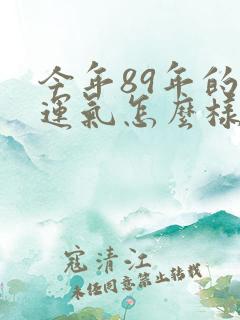 今年89年的
運氣怎麼樣
寇清江
未经同意禁止转载